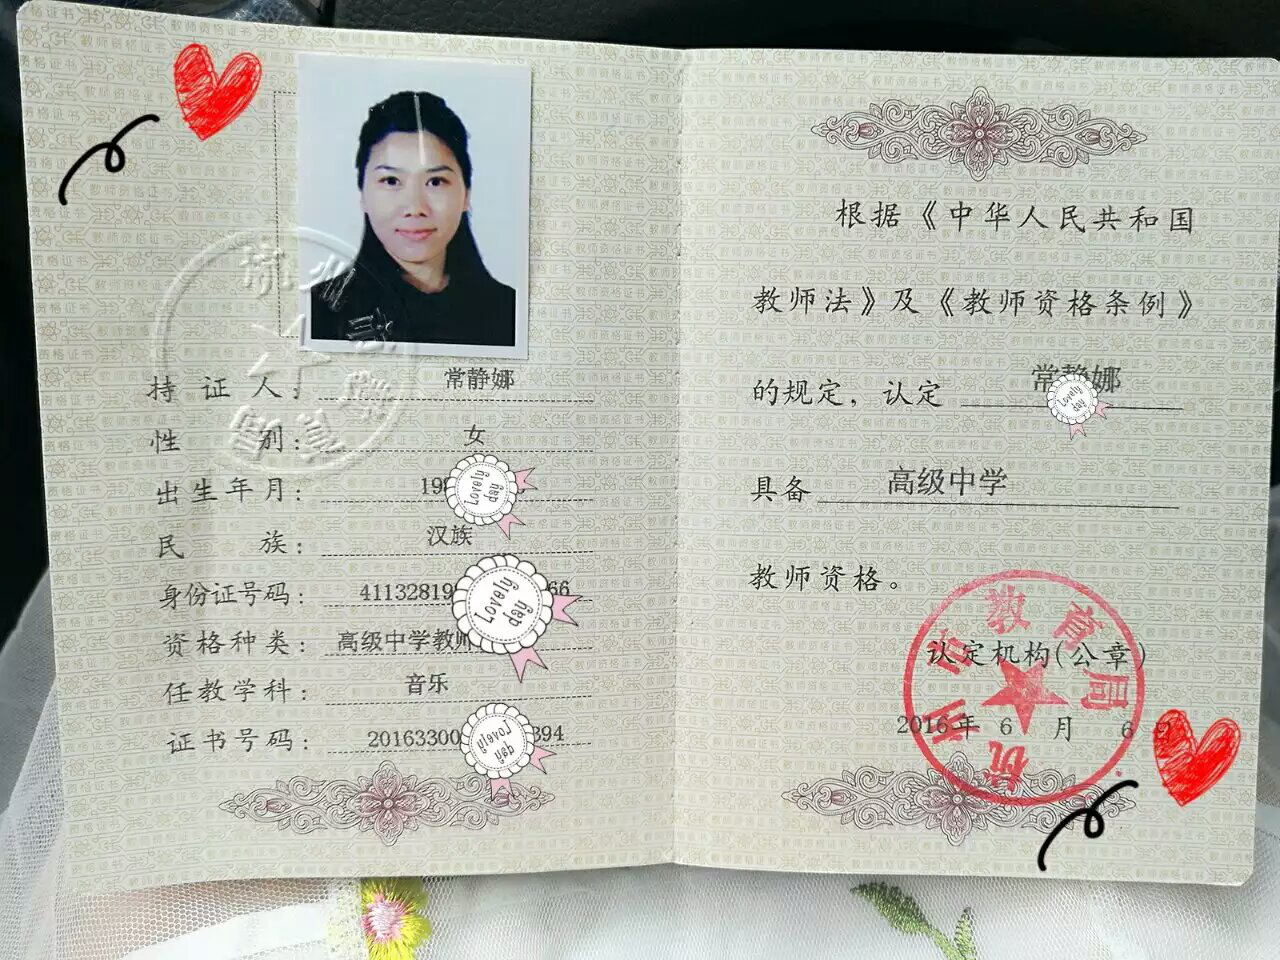 持证人： 常静娜
性别： 女
出生年月： 19
民族： 汉族
身份证号码： 41132819 66
资格种类： 高级中学教师
任教学科： 音乐
证书号码： 20163300 394
Lovely day
Lovely day
Lovely day
根据《中华人民共和国
教师法》及《教师资格条例》
的规定，认定 常静娜
Lovely day
具备 高级中学
教师资格。
杭州市教育局
认定机构(公章)
2016年 6 月 6